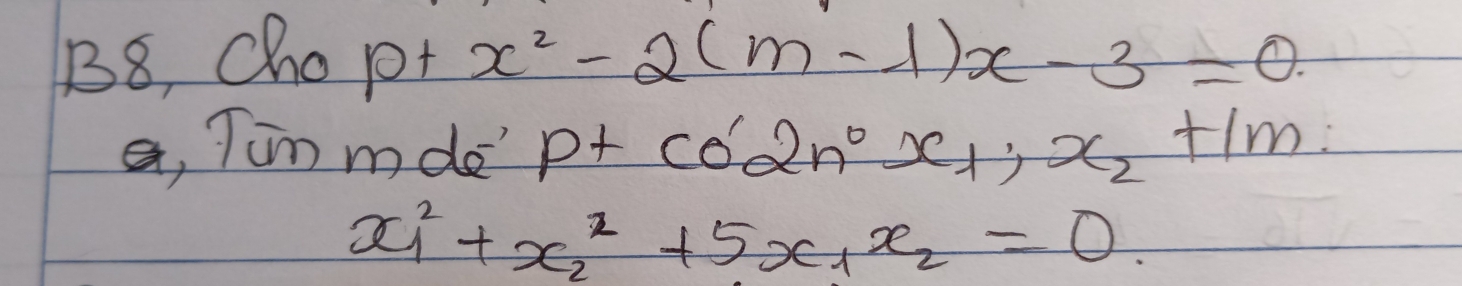 B8, Cho pt x² - 2(m - 1)x - 3 = 0.
a, Tìm m để pt có 2n⁰ x₁; x₂ t/m:
x₁² + x₂² + 5x₁x₂ = 0.